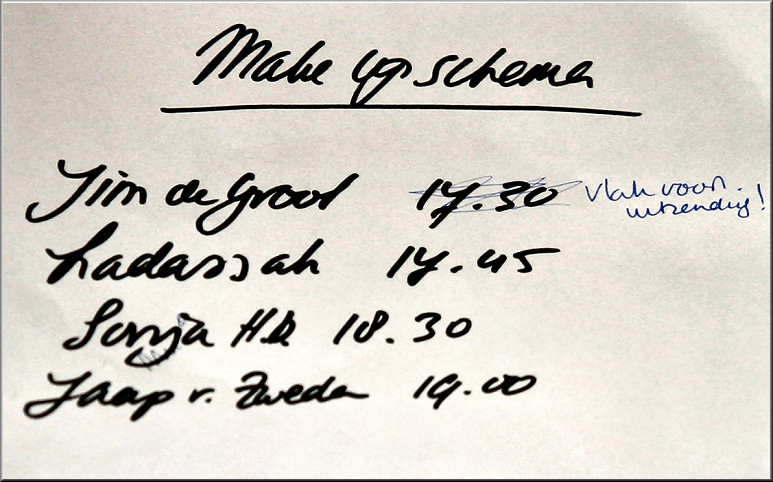 Make up schema
Jim de Groot 17.30 vlak voor
uitzending!
Hadassah 17.45
Sonja H.d 18.30
Jaap v. Zweden 19.00